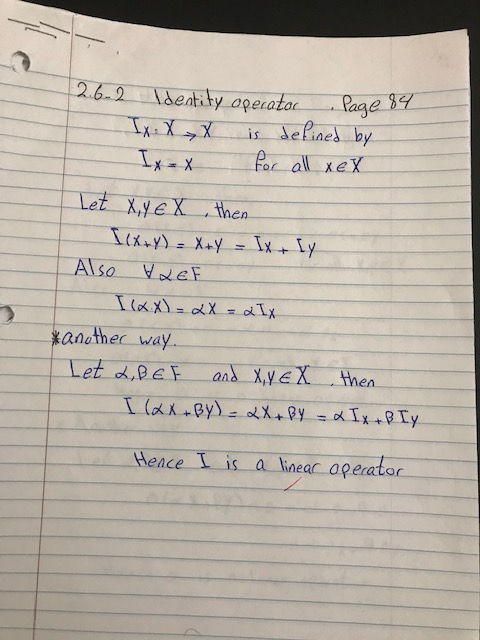 2.6-2 Identity operator . Page 84
Ix: X → X is defined by
Ix = x for all x∈X
Let x,y ∈ X , then
I(x+y) = x+y = Ix + Iy
Also ∀ α∈F
I(αx) = αx = αIx
*another way.
Let α,β ∈ F and x,y ∈ X , then
I (αx + βy) = αx + βy = αIx + βIy
Hence I is a linear operator